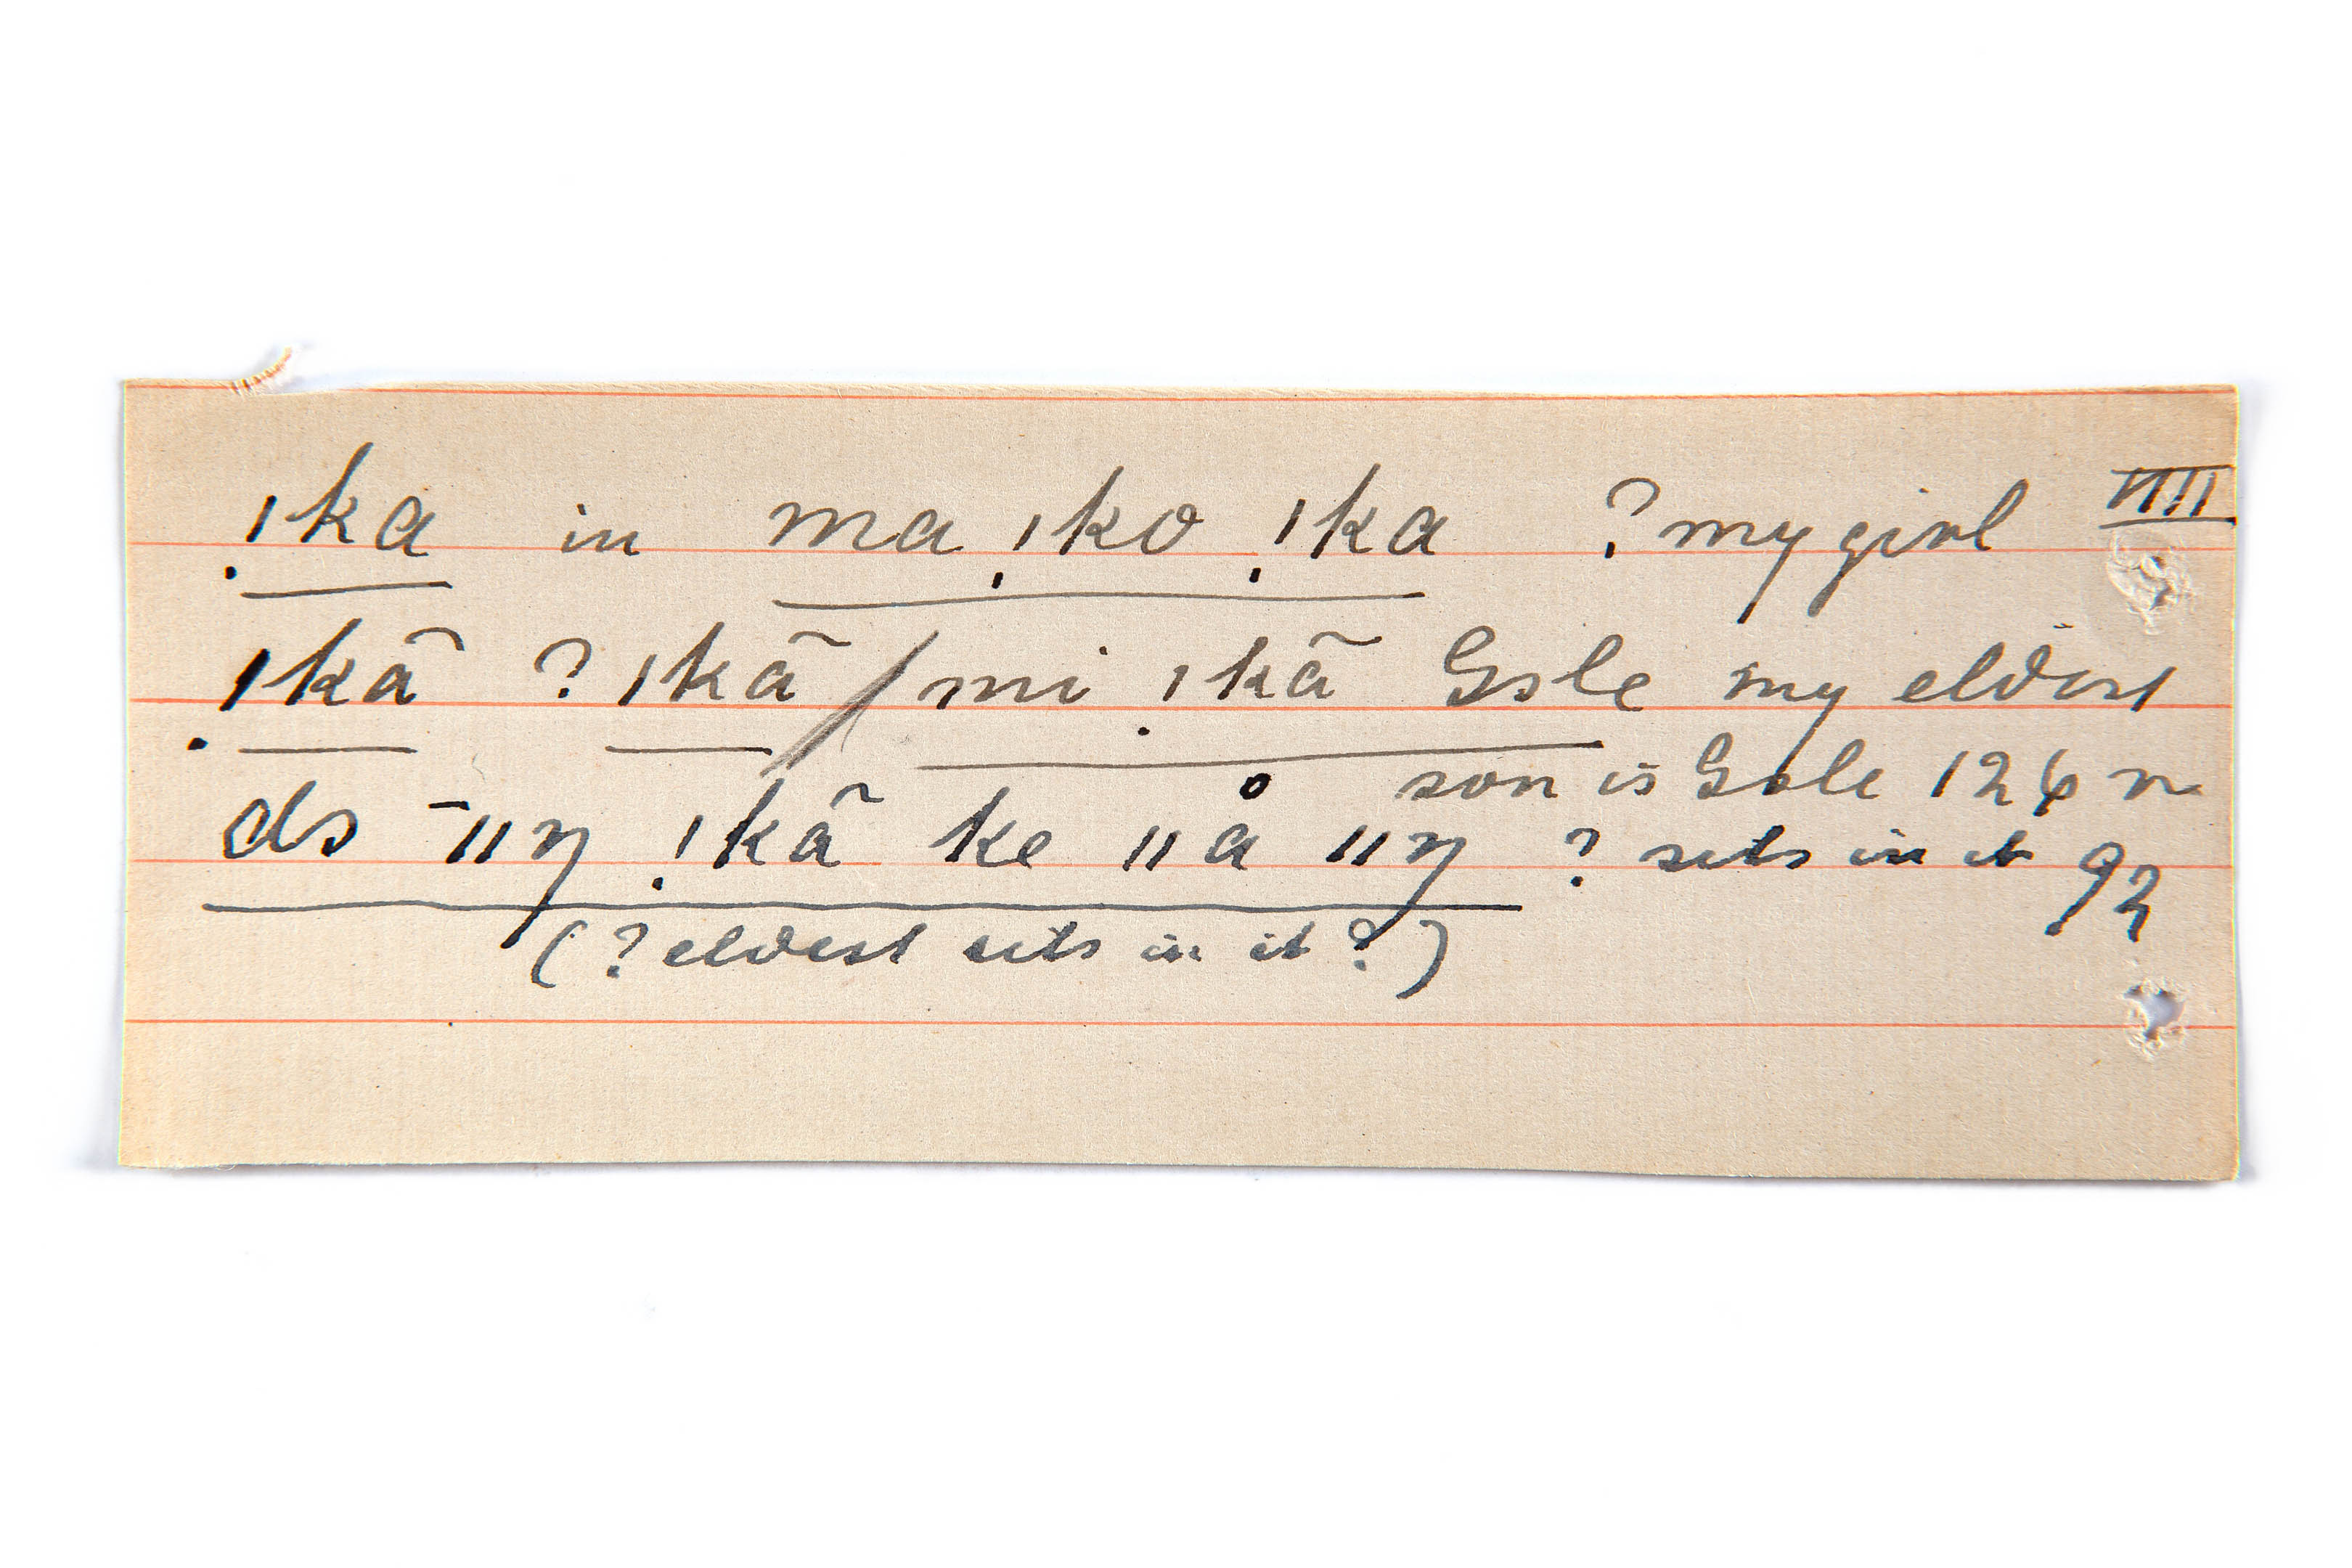 !ka in ma !ko !ka ? my girl VIII
!kã ? ǀkã / mi !kã Gole my eldest
son is Gole 126 r
do ‾ǁŋ !kã ke ǁå ǁŋ ? sits in it 92
(? eldest sits in it ?)